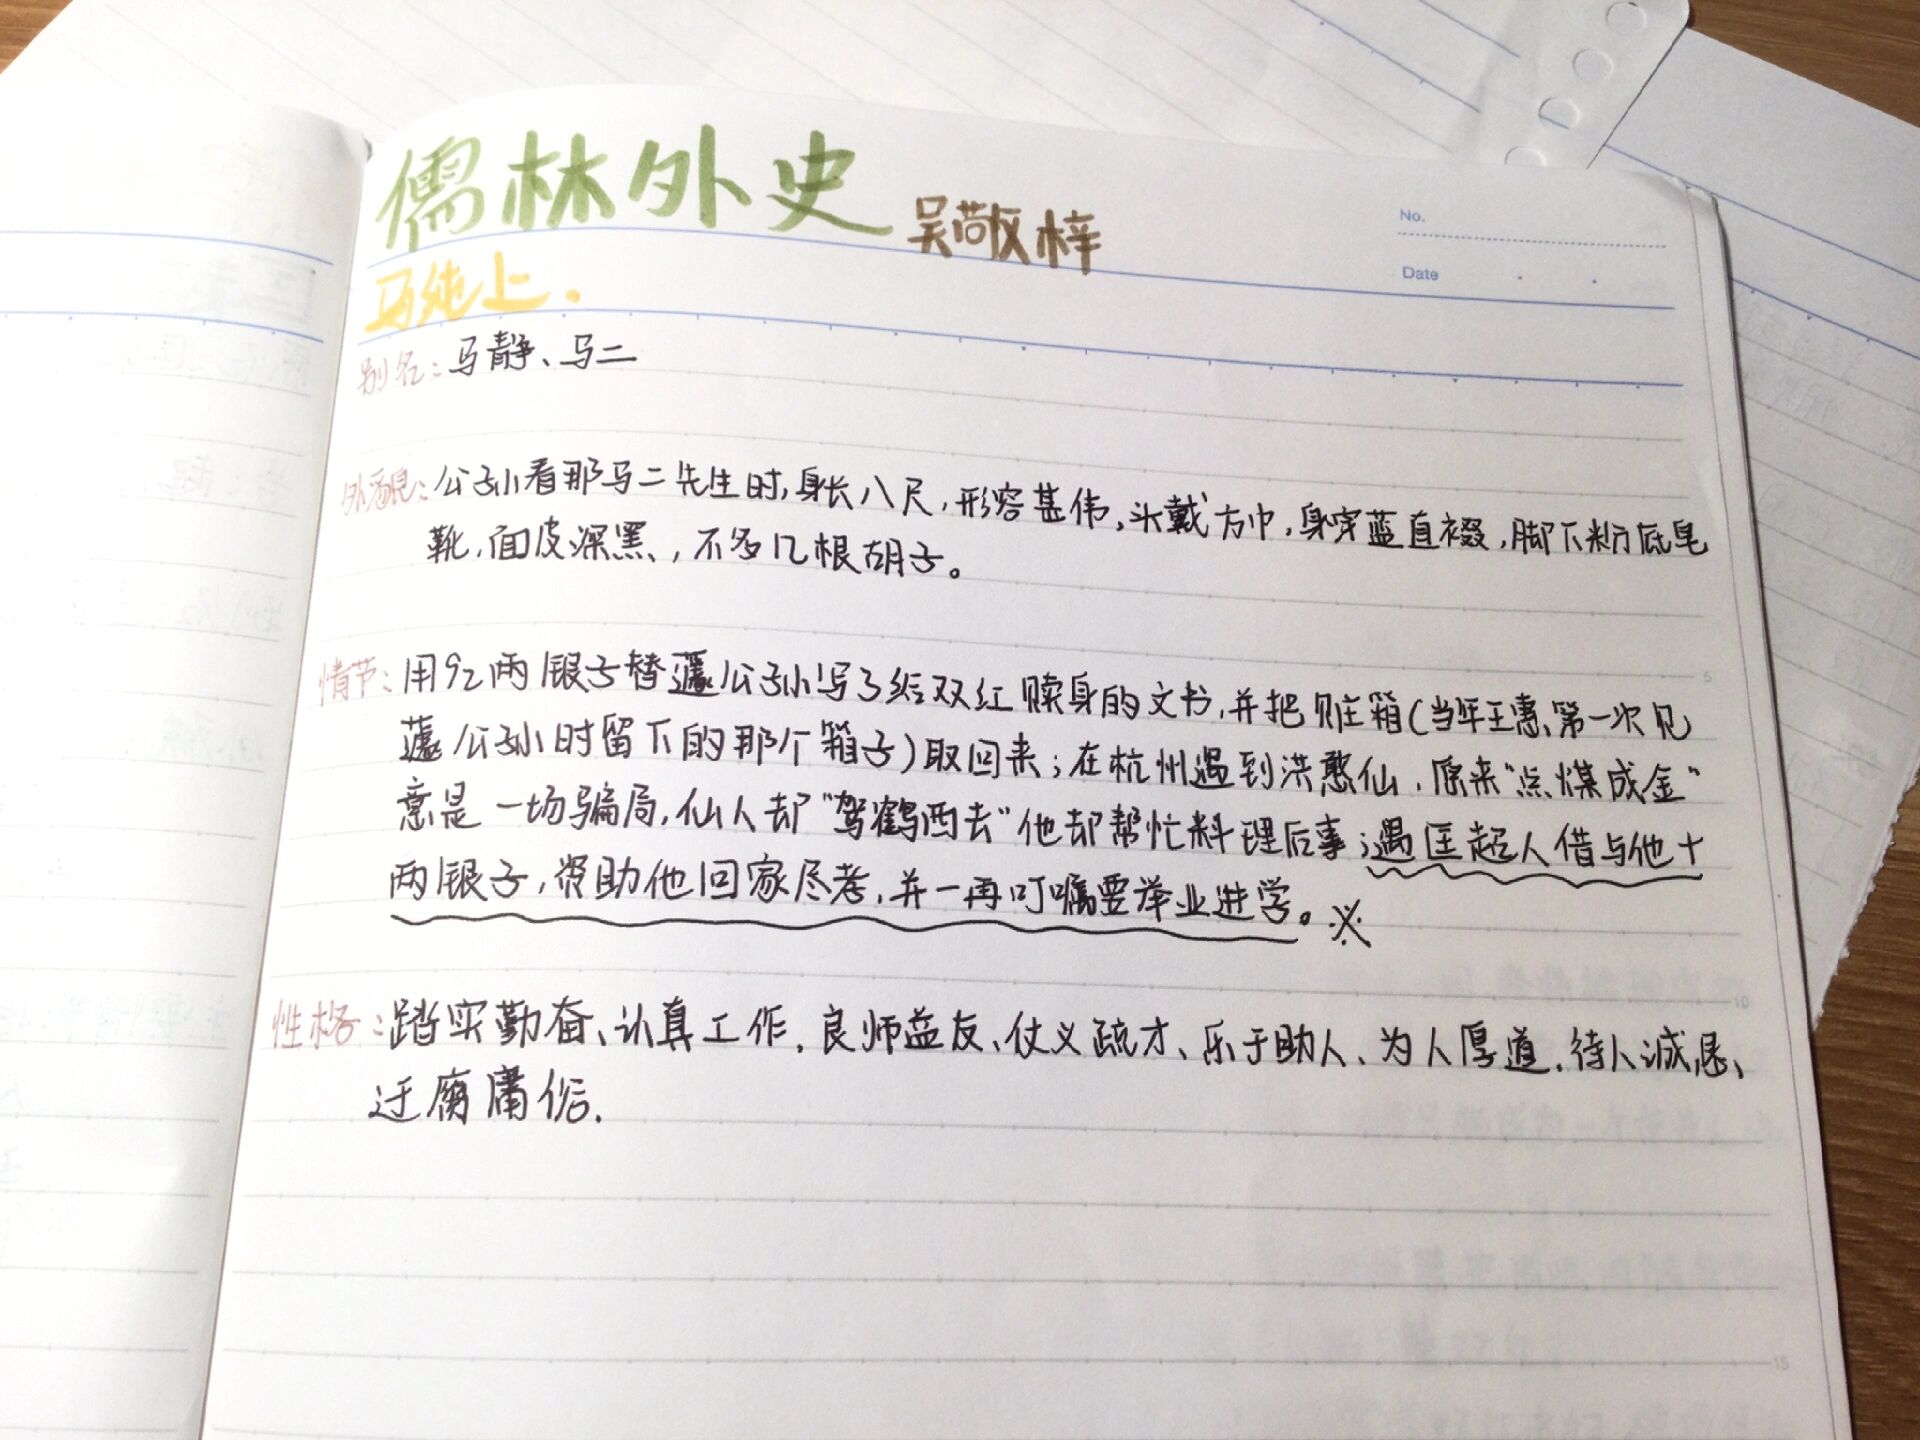 儒林外史 吴敬梓
No.
Date
马纯上.
别名:马静、马二
外貌:公孙看那马二先生时,身长八尺,形容甚伟,头戴方巾,身穿蓝直裰,脚下粉底皂
靴,面皮深黑,不多几根胡子。
情节:用92两银子替蘧公孙写了给双红赎身的文书,并把赃箱(当年王惠第一次见
蘧公孙时留下的那个箱子)取回来;在杭州遇到洪憨仙,原来“点煤成金”
意是一场骗局,仙人却“驾鹤西去”他却帮忙料理后事;遇匡超人借与他十
两银子,资助他回家尽孝,并一再叮嘱要举业进学。※
性格:踏实勤奋、认真工作,良师益友、仗义疏才、乐于助人、为人厚道,待人诚恳、
迂腐庸俗.
5
10
15